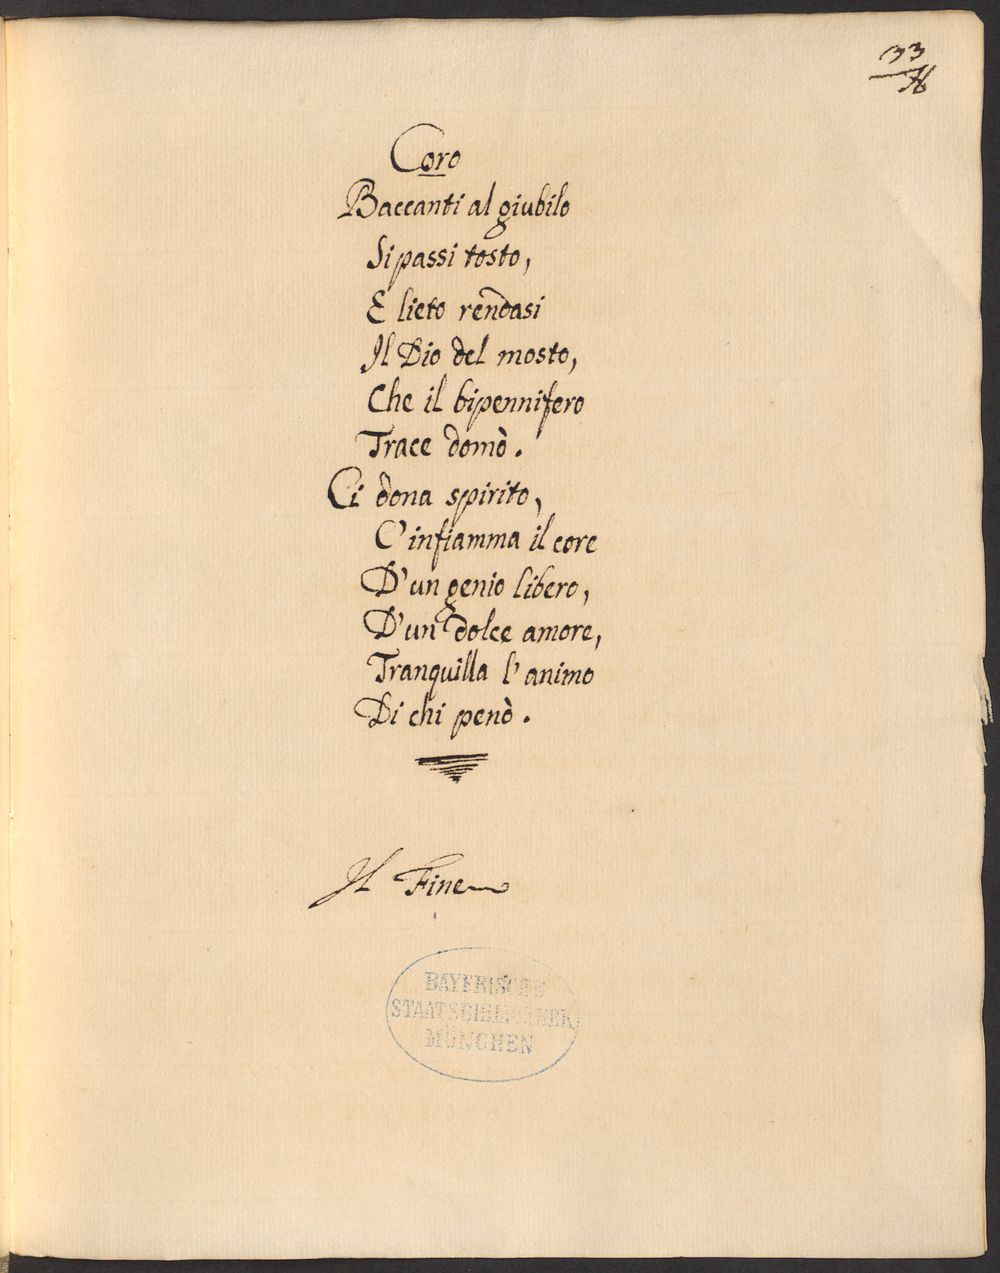 33
Coro
Baccanti al giubilo
Si passi tosto,
E lieto rendasi
Il Dio del mosto,
Che il bipennifero
Trace domò.
Ci dona spirito,
C'infiamma il core
D'un genio libero,
D'un dolce amore,
Tranquilla l'animo
Di chi penò.
Il Fine
BAYERISCHE
STAATSBIBLIOTHEK
MÜNCHEN